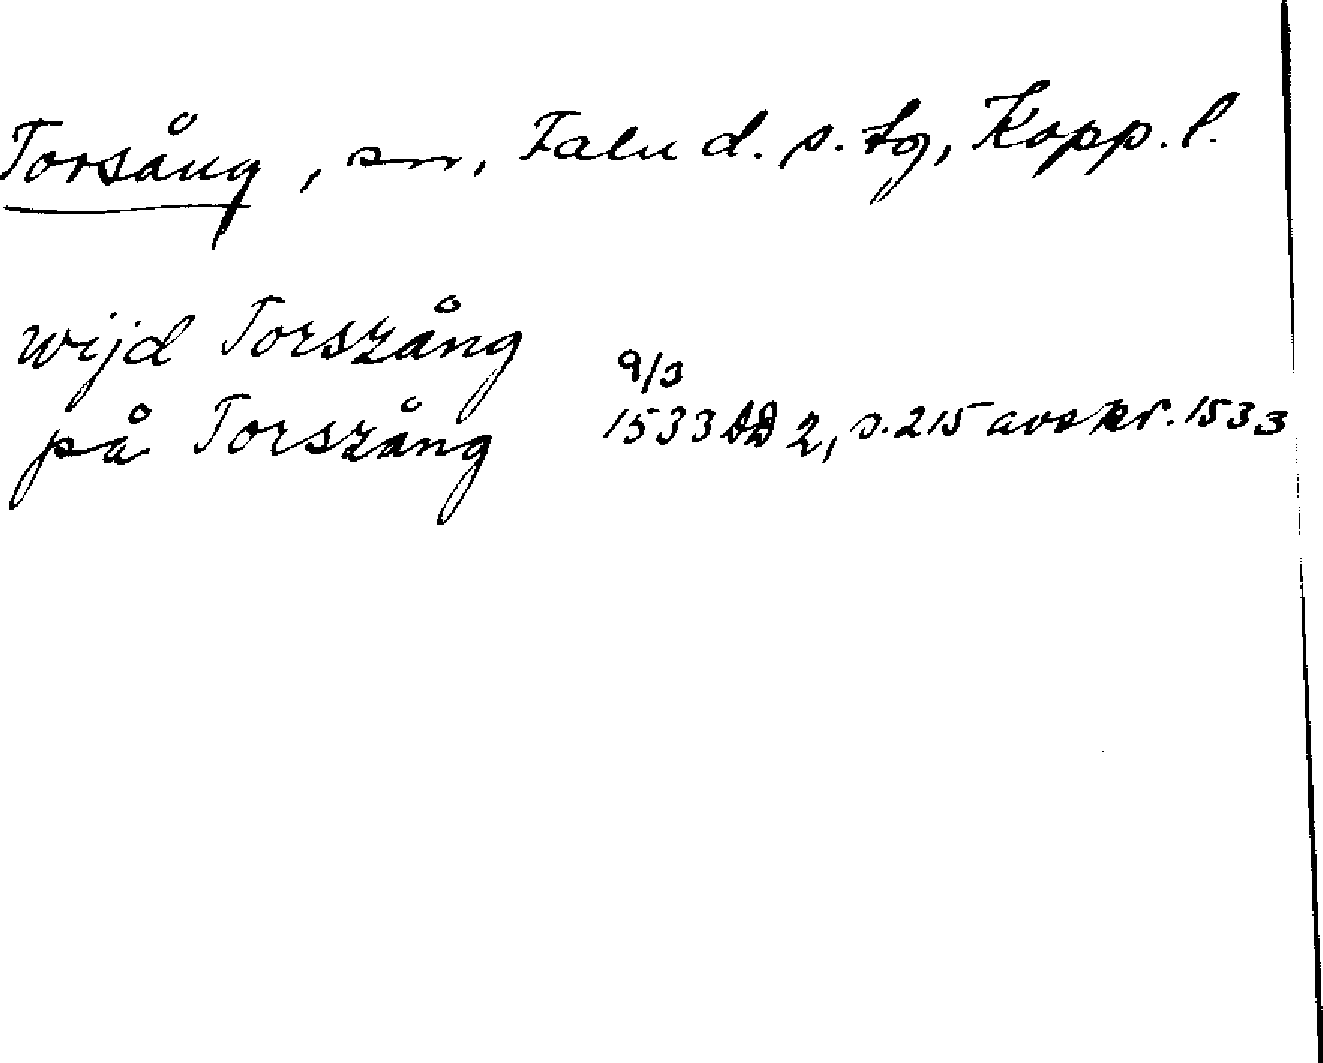 Torsång, sn, Falu d. s. tg, Kopp. l.
wijd Torszång
9/3
på Torszång 1533 DD 2, s. 215 avskr. 1533